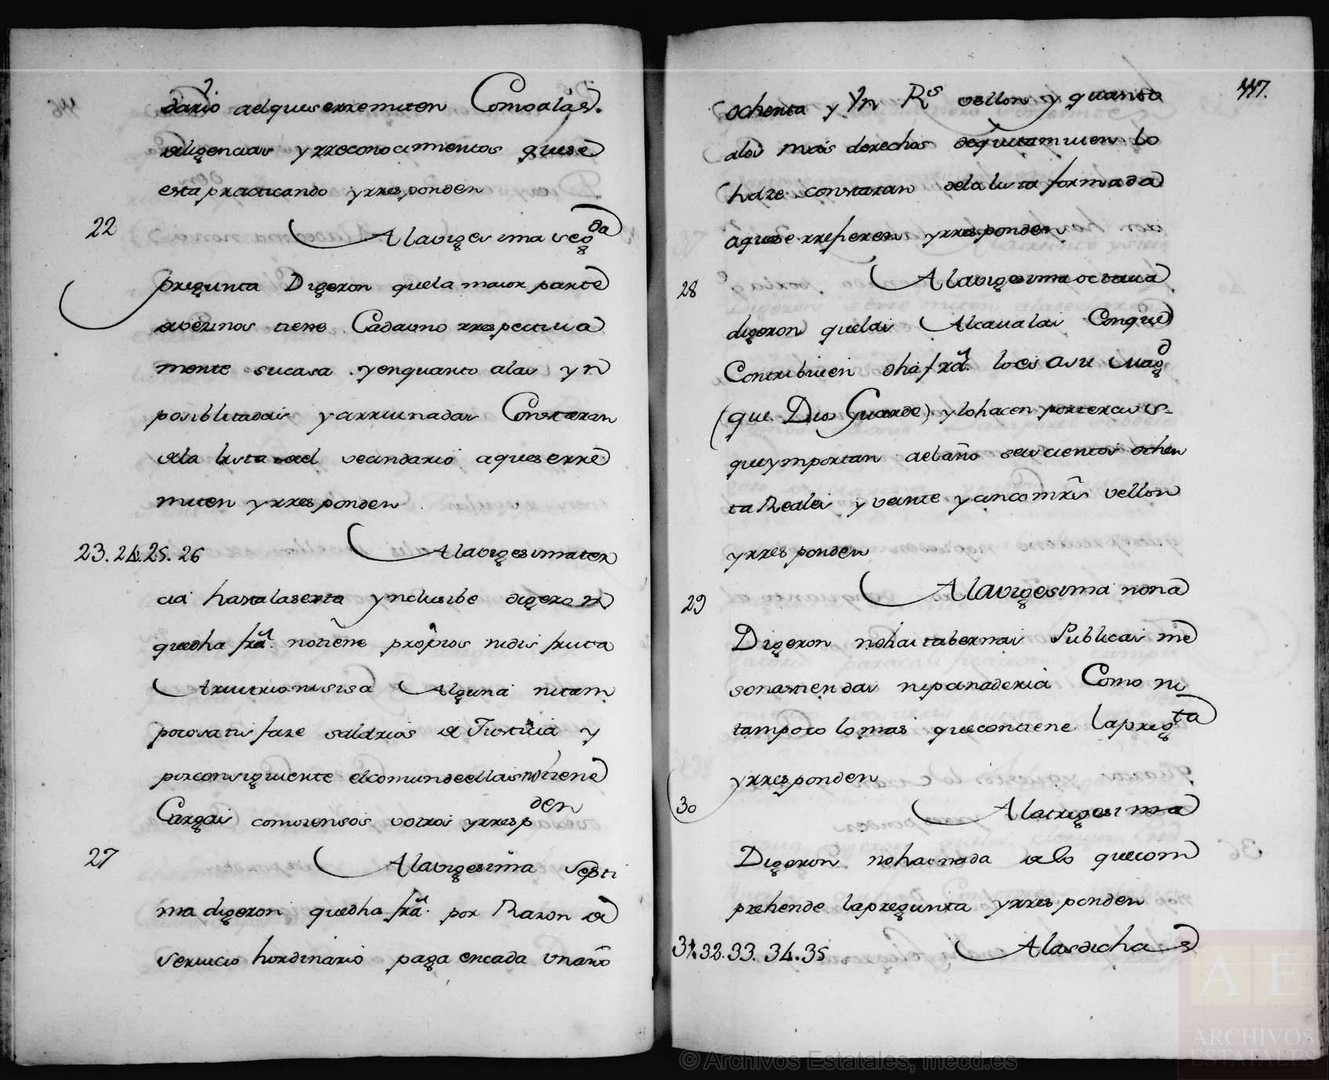 dario aelquese rremiten Como alas
diligencias y rreconocimientos quese
esta practicando y rresponden
22
A la vigesima seg.da
pregunta Digeron que la maior parte
de vecinos tiene Cada uno rrespectiva
mente su casa y en quanto a las yn
posiblitadas y arruinadas Constaran
de la lista del vecindario a que se rre
miten y rresponden
23. 24. 25. 26
A la vigesima ter
cia hasta la sexta ynclusibe digeron
que dha fra. no tiene propios ni disfruta
Arvitrio ni sisa Alguna ni tam
poco satisfaze salarios de Justicia y
por consiguiente el comun de ella no tiene
Cargas como censos v otros y rrespden
27
A la vigesima Septi
ma digeron que dha fra. por Razon de
servicio hordinario paga en cada un año
447.
ochenta y Vn R.s vellon y quanto
a los mas derechos de que tamvien lo
hace constaran de la lista formada
a que se rrefieren y rresponden
28
A la vigesima octava
digeron que las Alcavalas Con que
Contribuien dha fra. lo es a su Magd
(que Dios Guarde) y lo hacen por tercios
que ymportan al año seis cientos ochen
ta Reales y veinte y cinco mrs vellon
y rresponden
29
A la vigesima nona
Digeron no hai tabernas Publicas me
sones tiendas ni panaderia Como ni
tampoco lo mas que contiene la pregta
y rresponden
30
A la trigesima
Digeron no hai nada de lo que com
prehende la pregunta y rresponden
31. 32. 33. 34. 35
A las dichas
AE
ARCHIVOS
ESTATALES
© Archivos Estatales, mecd.es